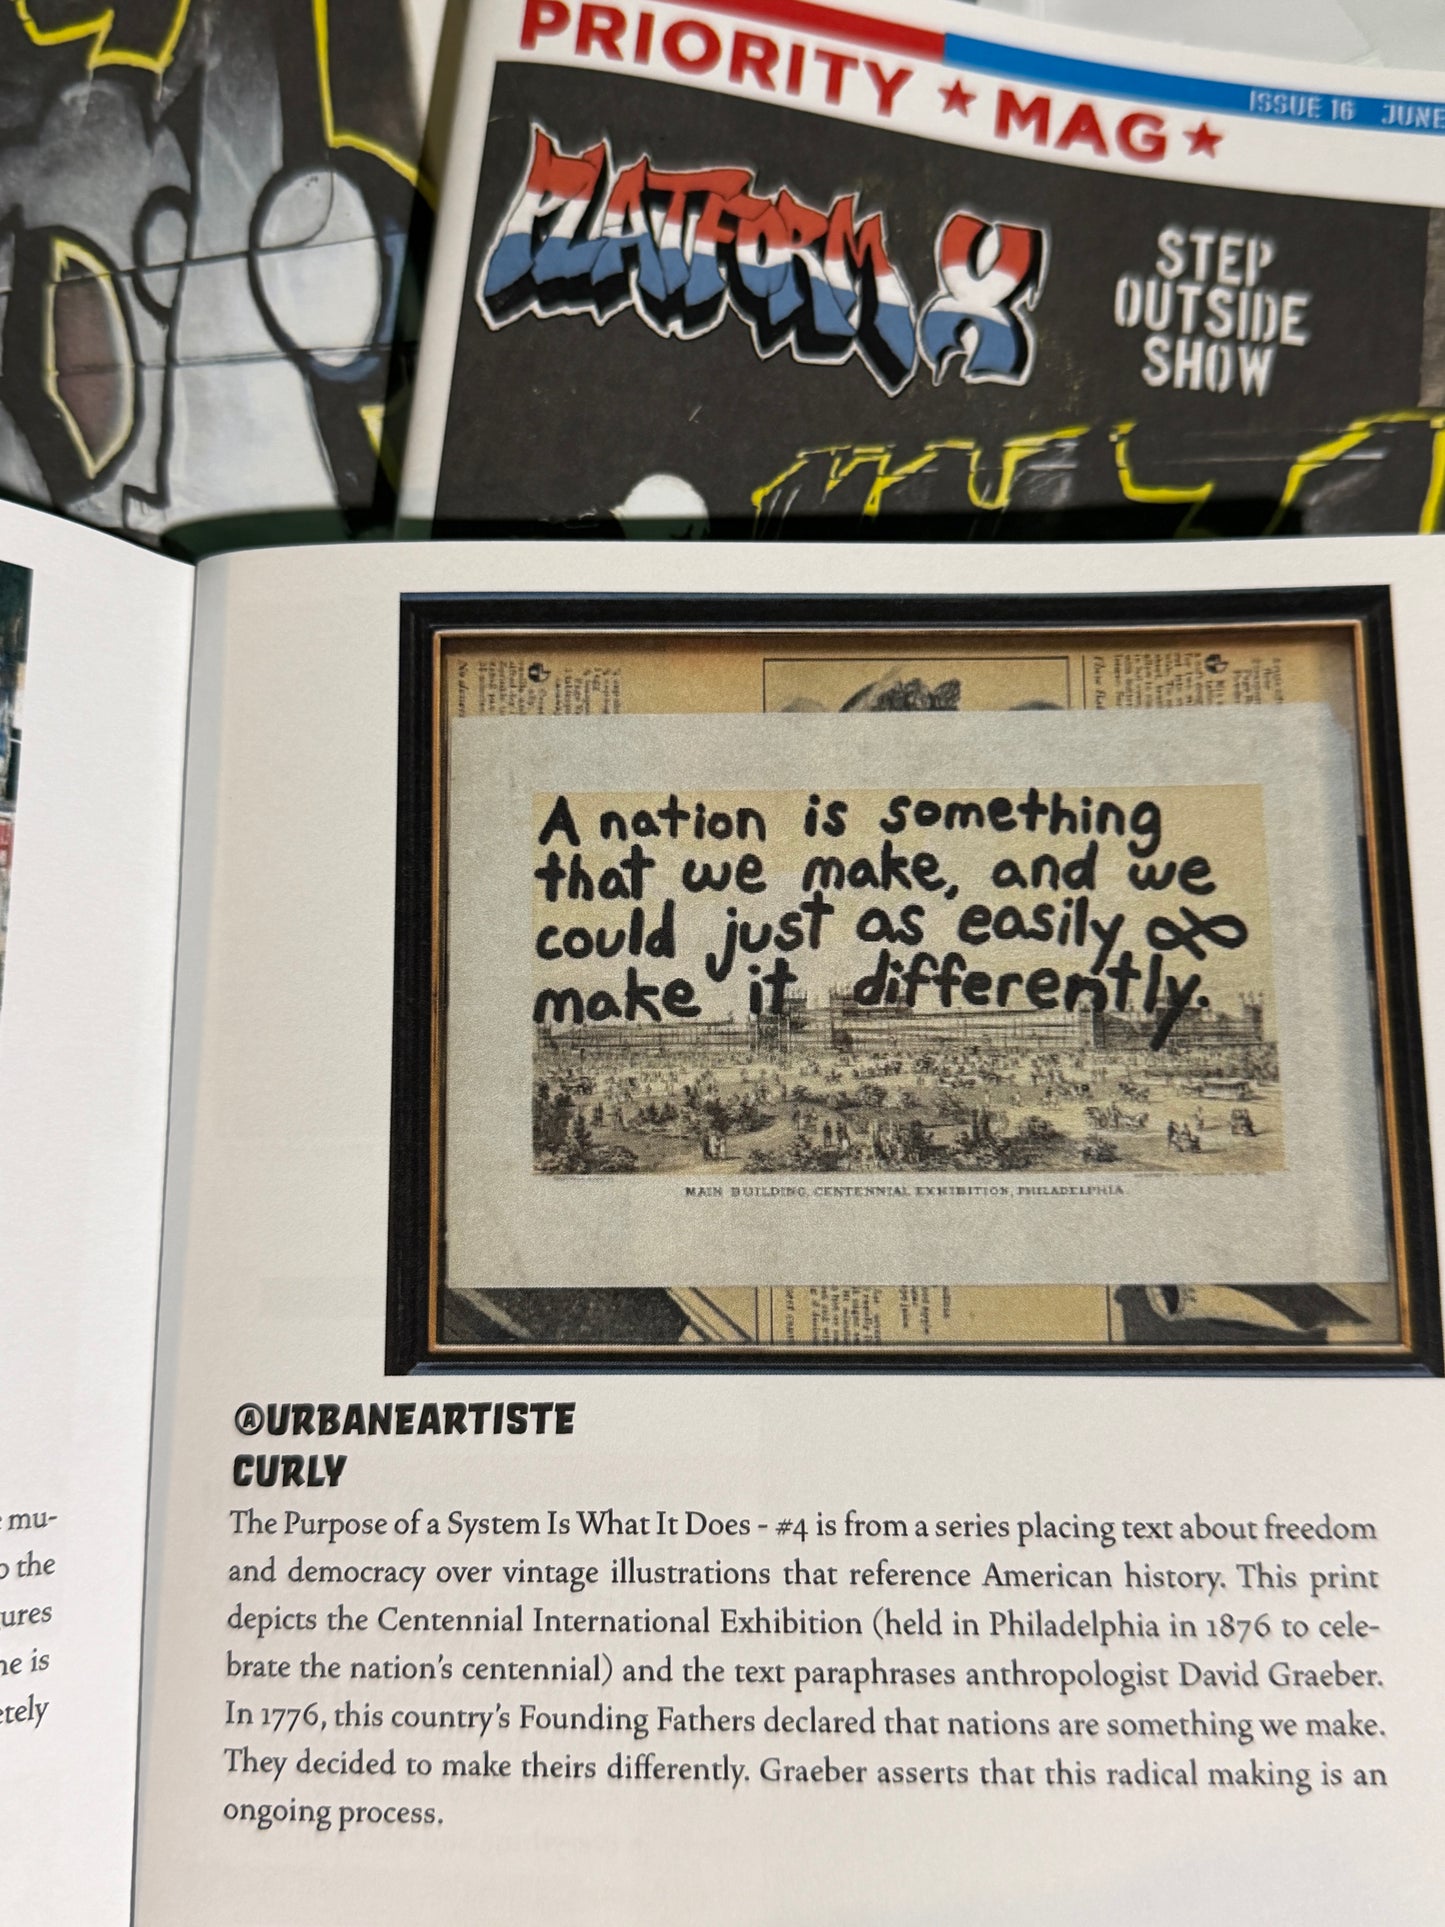 PRIORITY ★ MAG ★
ISSUE 16 JUNE
PLATFORM X
STEP
OUTSIDE
SHOW
A nation is something
that we make, and we
could just as easily
make it differently.
MAIN BUILDING, CENTENNIAL EXHIBITION, PHILADELPHIA
@URBANEARTISTE
CURLY
The Purpose of a System Is What It Does - #4 is from a series placing text about freedom
and democracy over vintage illustrations that reference American history. This print
depicts the Centennial International Exhibition (held in Philadelphia in 1876 to cele-
brate the nation's centennial) and the text paraphrases anthropologist David Graeber.
In 1776, this country's Founding Fathers declared that nations are something we make.
They decided to make theirs differently. Graeber asserts that this radical making is an
ongoing process.
mu-
the
ures
is
etely